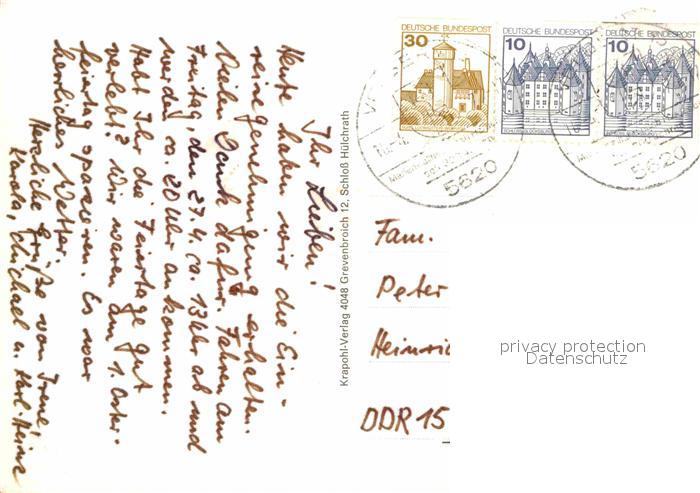 Ihr Lieben!
Heute haben wir die Ein-
reisegenehmigung erhalten.
Vielen Dank dafür. Fahren am
Freitag, den 27.4. ca. 13 Uhr ab und
werden ca. 20 Uhr ankommen.
Habt Ihr die Feiertage gut
verlebt? Wir waren am 1. Oster-
feiertag spazieren. Es war
herrliches Wetter.
Herzliche Grüße von Irene,
Michael u. Karl-Heinz
Krapohl-Verlag 4048 Grevenbroich 12, Schloß Hülchrath
DEUTSCHE BUNDESPOST
30
DEUTSCHE BUNDESPOST
10
DEUTSCHE BUNDESPOST
10
5620
5620
Fam.
Peter
Heinri
DDR 15
privacy protection
Datenschutz